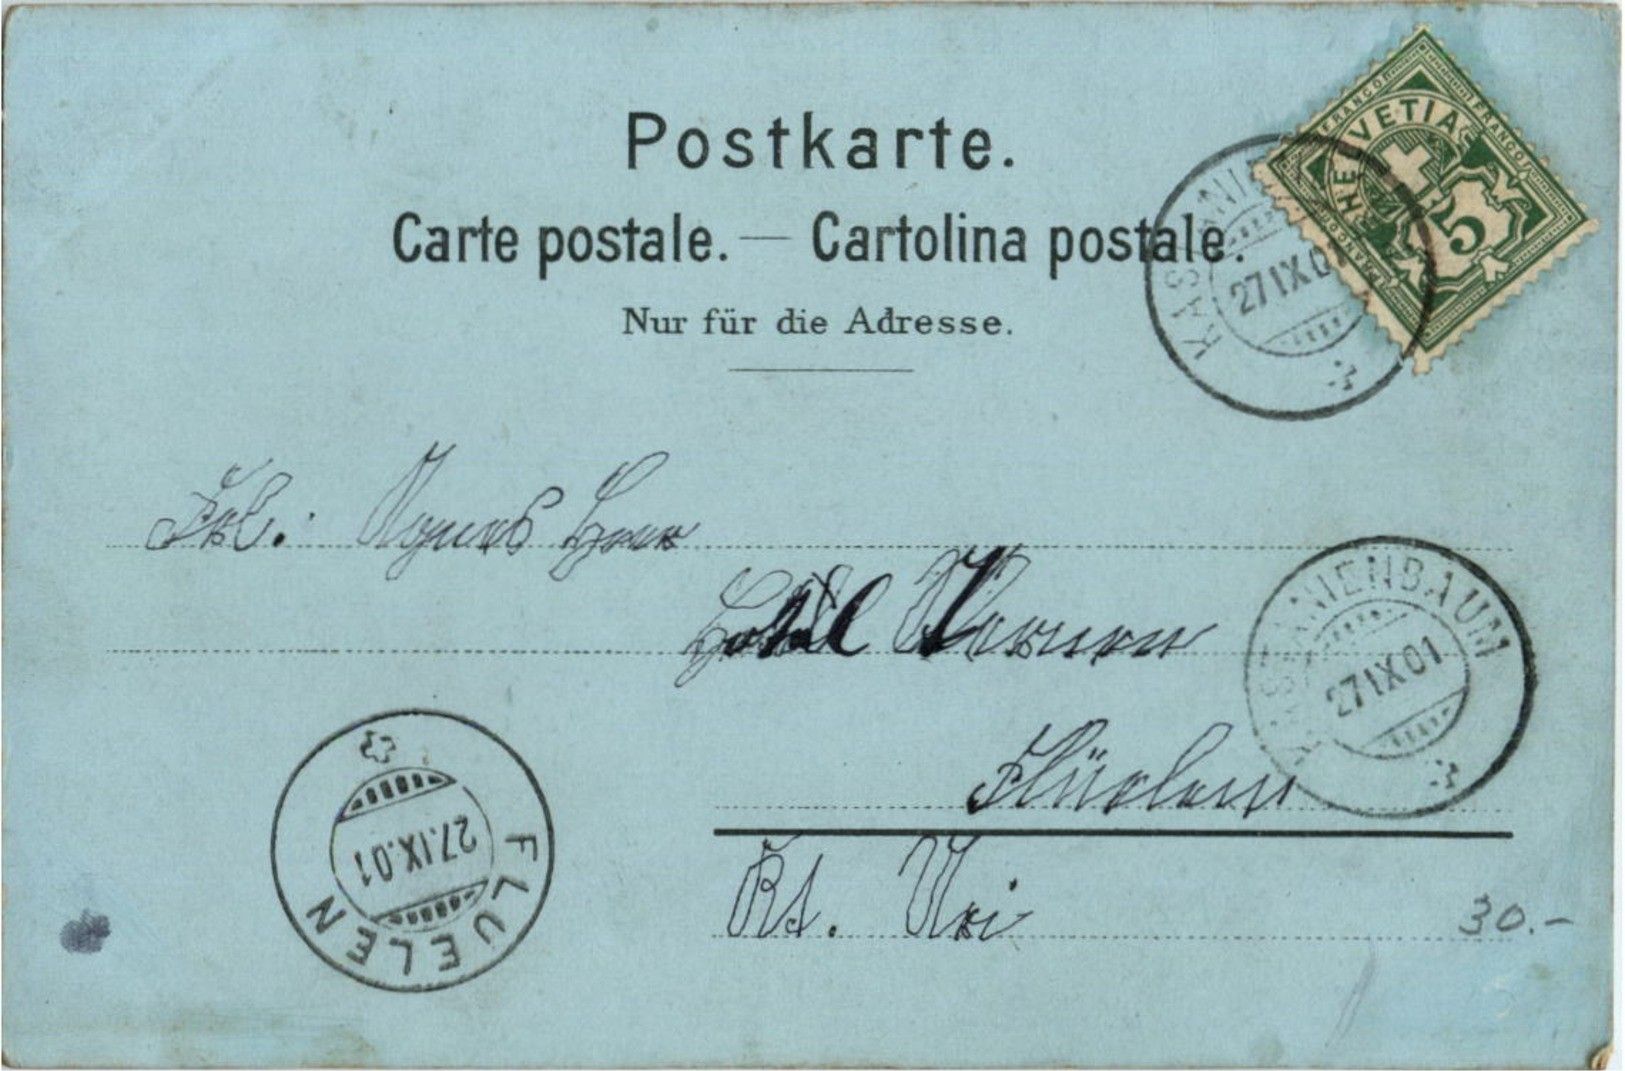 Postkarte.
Carte postale. — Cartolina postale.
Nur für die Adresse.
FRANCO FRANCO FRANCO
HELVETIA
5
KASTANIENBAUM
27 IX 01
Frl. Agnes
Hotel
KASTANIENBAUM
27 IX 01
Flüelen
FLUELEN
27.IX.01
Kt. Uri
30.-